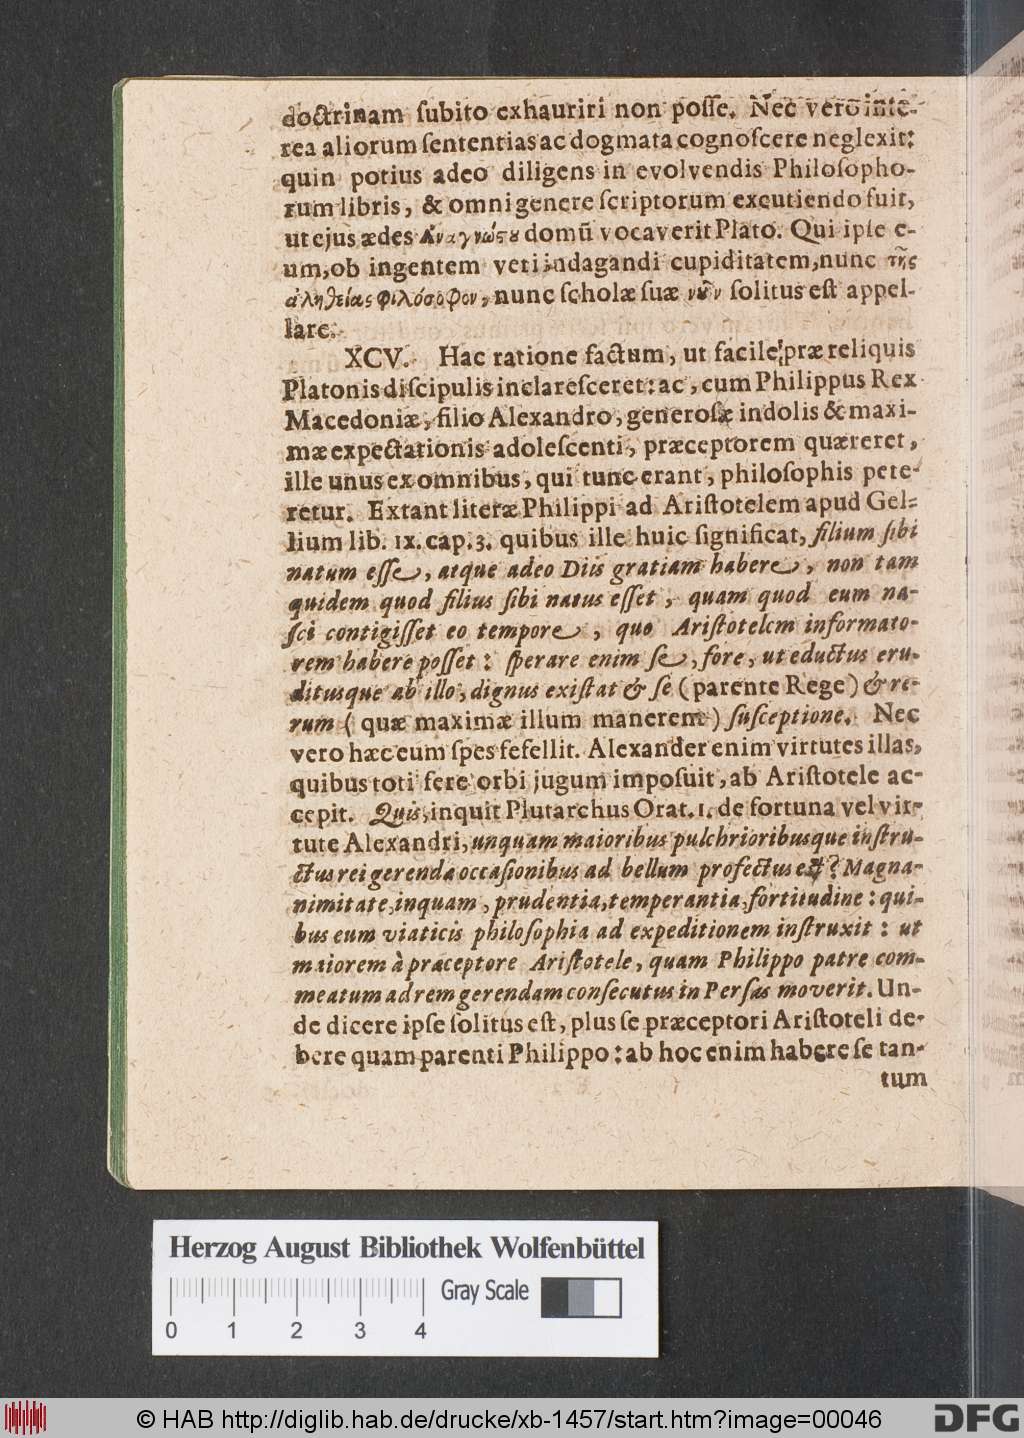 doctrinam ſubito exhauriri non poſſe. Nec vero inte-
rea aliorum ſententias ac dogmata cognoſcere neglexit:
quin potius adeo diligens in evolvendis Philoſopho-
rum libris, & omni genere ſcriptorum excutiendo fuit,
ut ejus ædes Ἀναγνώϛου domū vocaverit Plato. Qui ipſe e-
um, ob ingentem veri indagandi cupiditatem, nunc τῆς
ἀληθείας φιλόσοφον, nunc ſcholæ ſuæ νοῦν ſolitus eſt appel-
lare.
XCV. Hac ratione factum, ut facile præ reliquis
Platonis diſcipulis inclareſceret: ac, cum Philippus Rex
Macedoniæ, filio Alexandro, generoſæ indolis & maxi-
mæ expectationis adoleſcenti, præceptorem quæreret,
ille unus ex omnibus, qui tunc erant, philoſophis pete-
retur. Extant literæ Philippi ad Ariſtotelem apud Gel-
lium lib. IX. cap. 3. quibus ille huic ſignificat, filium ſibi
natum eſſe, atque adeo Diis gratiam habere, non tam
quidem quod filius ſibi natus eſſet, quam quod eum na-
ſci contigiſſet eo tempore, quo Ariſtotelem informato-
rem habere poſſet: ſperare enim ſe, fore, ut eductus eru-
ditusque ab illo, dignus exiſtat & ſe (parente Rege) & re-
rum (quæ maximæ illum manerent) ſuſceptione. Nec
vero hæc eum ſpes fefellit. Alexander enim virtutes illas,
quibus toti fere orbi jugum impoſuit, ab Ariſtotele ac-
cepit. Quis, inquit Plutarchus Orat. 1. de fortuna vel vir-
tute Alexandri, unquam maioribus pulchrioribusque inſtru-
ctus rei gerendæ occaſionibus ad bellum profectus eſt? Magna-
nimitate, inquam, prudentia, temperantia, fortitudine: qui-
bus eum viaticis philoſophia ad expeditionem inſtruxit: ut
maiorem à præceptore Ariſtotele, quam Philippo patre com-
meatum ad rem gerendam conſecutus in Perſas moverit. Un-
de dicere ipſe ſolitus eſt, plus ſe præceptori Ariſtoteli de-
bere quam parenti Philippo: ab hoc enim habere ſe tan-
tum
Herzog August Bibliothek Wolfenbüttel
Gray Scale
0 1 2 3 4
© HAB http://diglib.hab.de/drucke/xb-1457/start.htm?image=00046
DFG